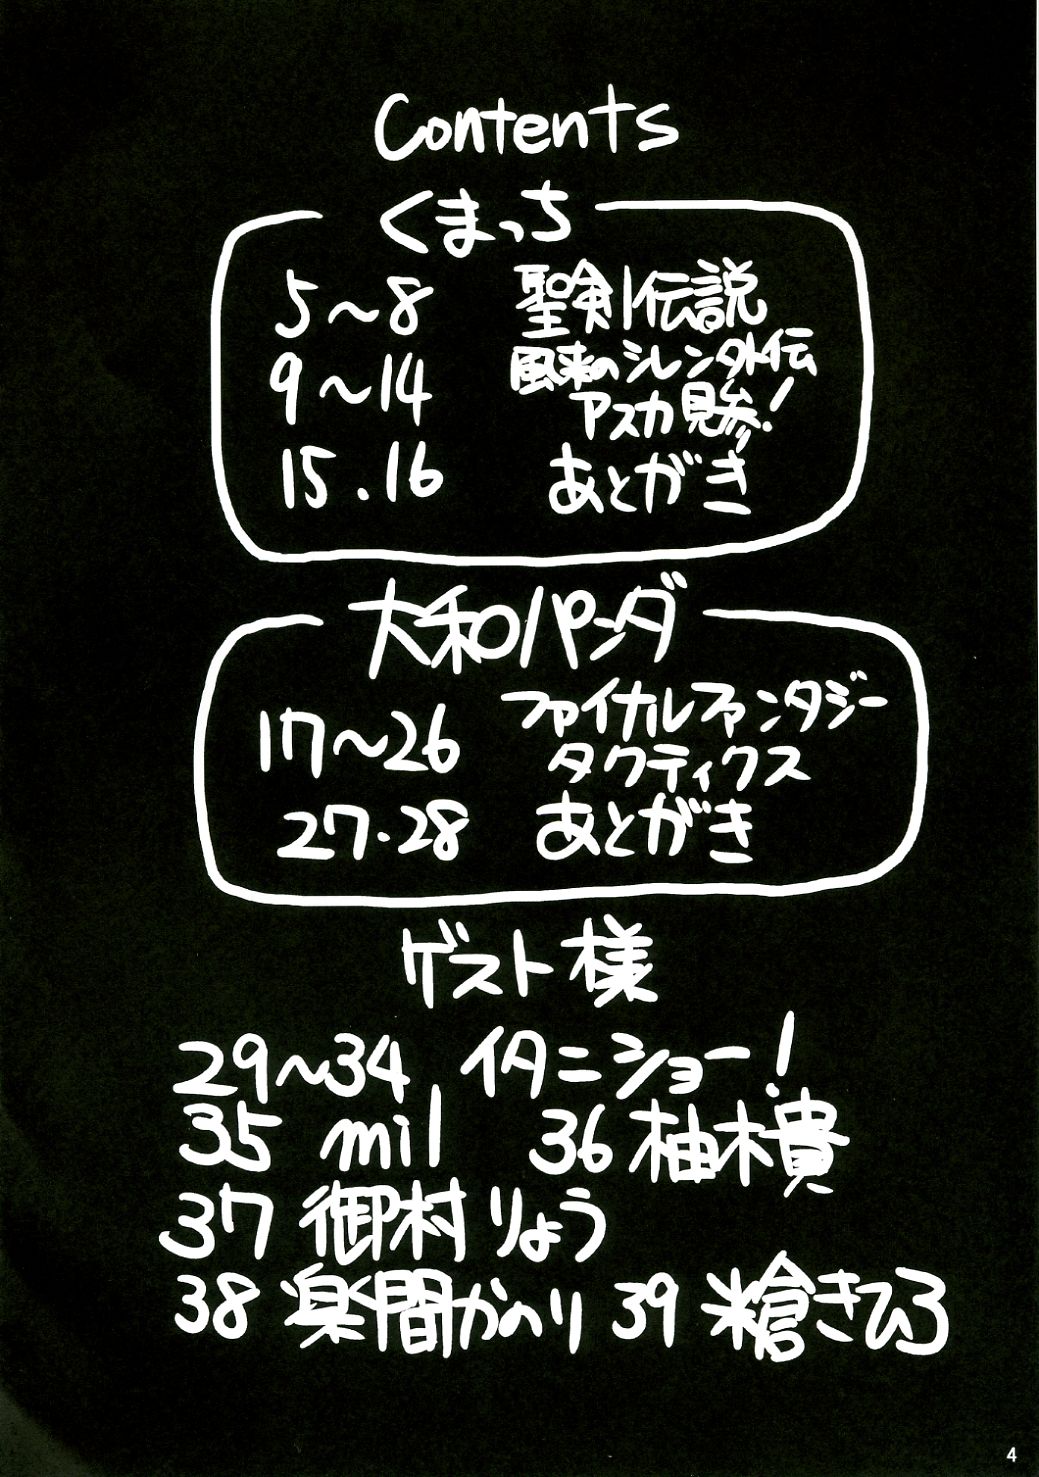 Contents
くまっち
5〜8 聖剣伝説
9〜14 風来のシレン外伝
アスカ見参!
15.16 あとがき
大和パンダ
17〜26 ファイナルファンタジー
タクティクス
27.28 あとがき
ゲスト様
29〜34 イタニショー!
35 mil 36 柚木貴
37 御村りょう
38 楽間かのり 39 きひろ
4